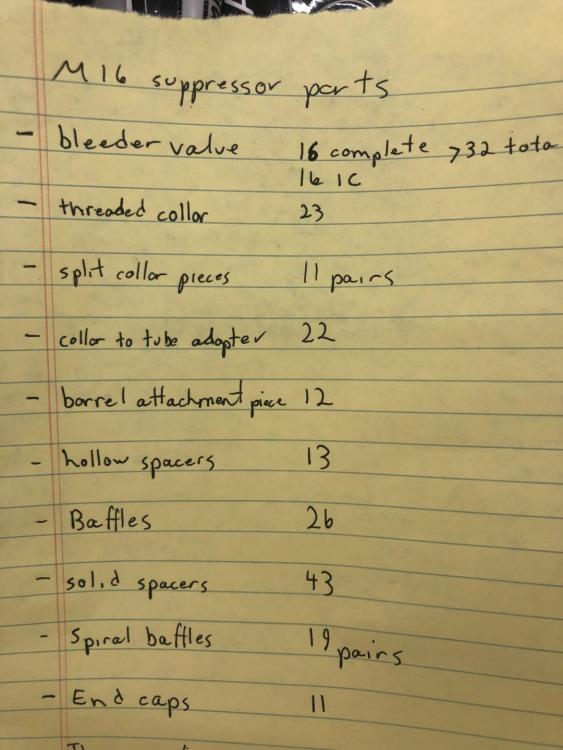 M16 suppressor parts
- bleeder valve 16 complete >32 tota
16 IC
- threaded collar 23
- split collar pieces 11 pairs
- collar to tube adapter 22
- barrel attachment piece 12
- hollow spacers 13
- Baffles 26
- solid spacers 43
- Spiral baffles 19 pairs
- End caps 11